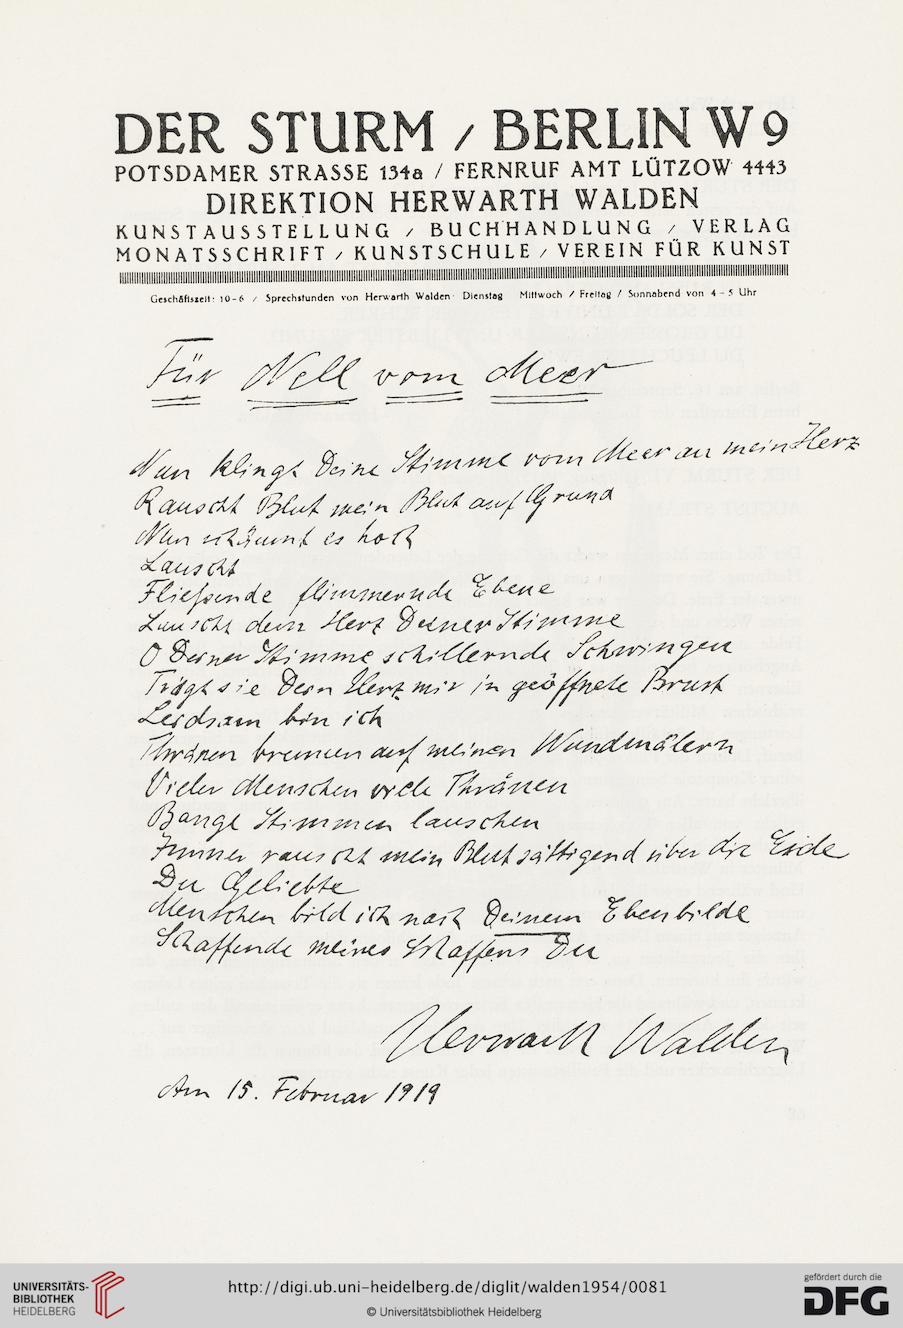 DER STURM / BERLIN W 9
POTSDAMER STRASSE 134a / FERNRUF AMT LÜTZOW 4443
DIREKTION HERWARTH WALDEN
KUNSTAUSSTELLUNG / BUCHHANDLUNG / VERLAG
MONATSSCHRIFT / KUNSTSCHULE / VEREIN FÜR KUNST
Geschäftszeit: 10-6 / Sprechstunden von Herwarth Walden: Dienstag Mittwoch / Freitag / Sonnabend von 4-5 Uhr
Für Nell vom Meer
Nun klingt Deine Stimme vom Meer an mein Herz
Rauscht Blut mein Blut auf Grund
Nun schäumt es hoch
Lauscht
Fließende flimmernde Ebene
Lauscht dein Herz Deiner Stimme
O Deiner Stimme schillernde Schwingen
Trägt sie Dein Herz mir in geöffnete Brust
Leidsam bin ich
Thränen brennen auf meinen Wundmälern
Vieler Menschen viele Thränen
Bange Stimmen lauschen
Immer rauscht mein Blut sättigend über die Erde
Du Geliebte
Menschen bild ich nach Deinem Ebenbilde
Schaffende meines Schaffens Du
Herwarth Walden
Am 15. Februar 1919
UNIVERSITÄTS-
BIBLIOTHEK
HEIDELBERG
http://digi.ub.uni-heidelberg.de/diglit/walden1954/0081
© Universitätsbibliothek Heidelberg
gefördert durch die
DFG